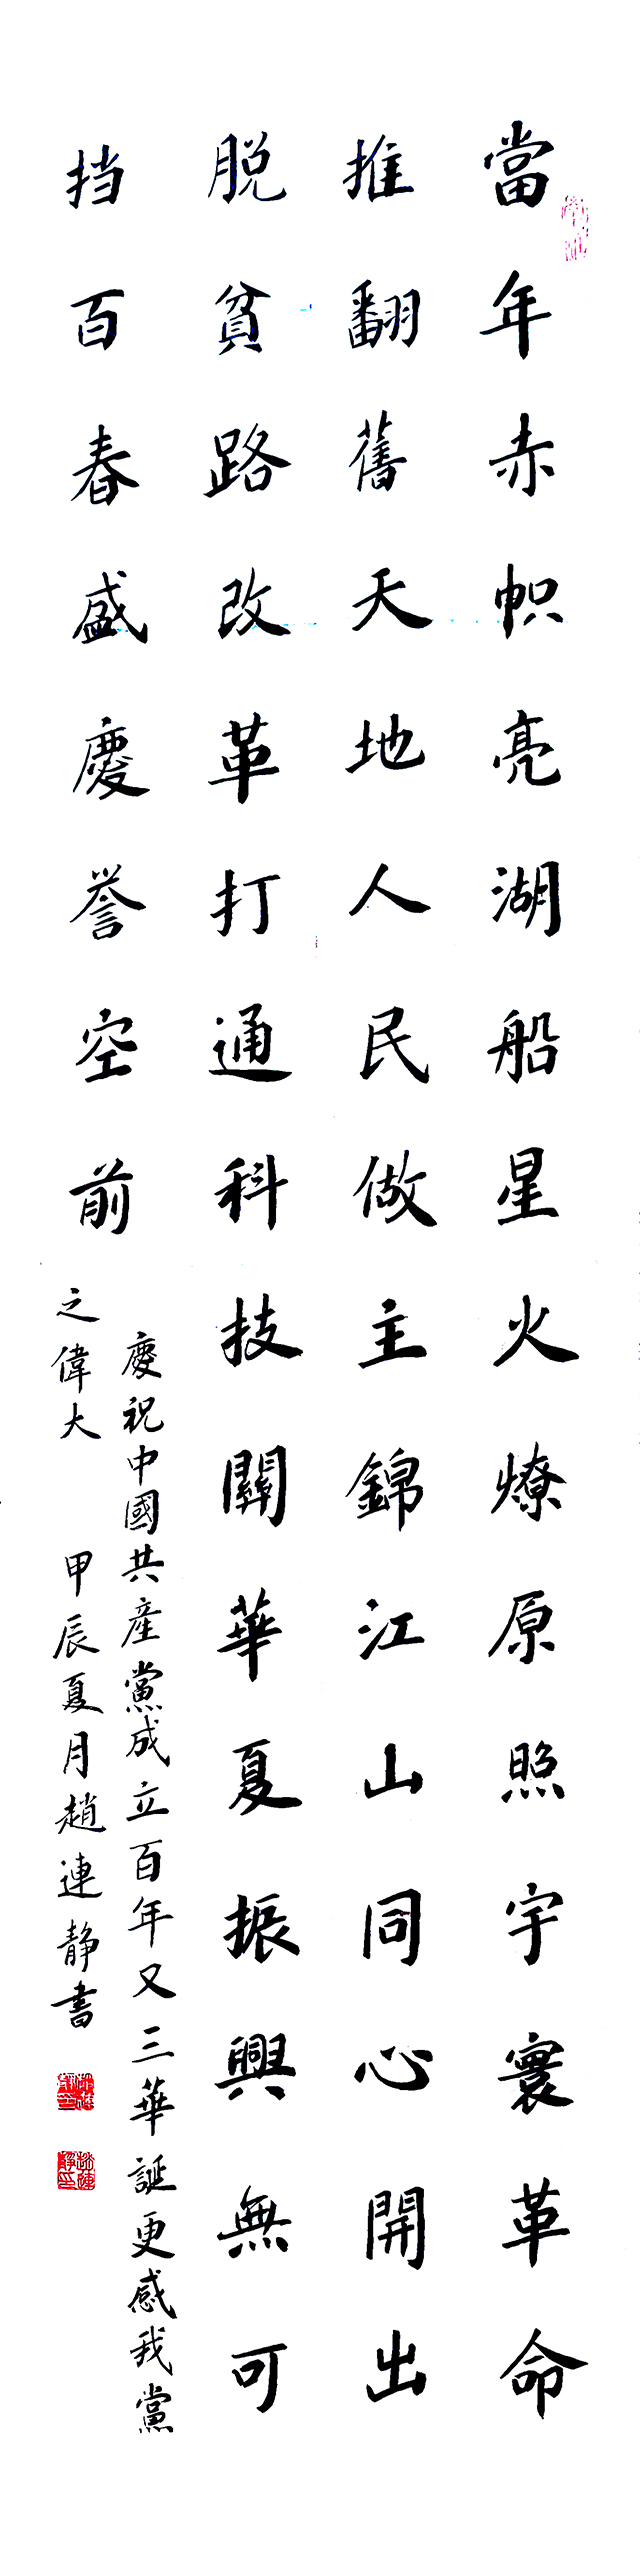 當年赤帜亮湖船星火燎原照宇寰革命
推翻舊天地人民做主錦江山同心開出
脱貧路改革打通科技關華夏振興無可
挡百春盛慶誉空前
慶祝中國共産黨成立百年又三華誕更感我黨
之偉大
甲辰夏月趙連靜書